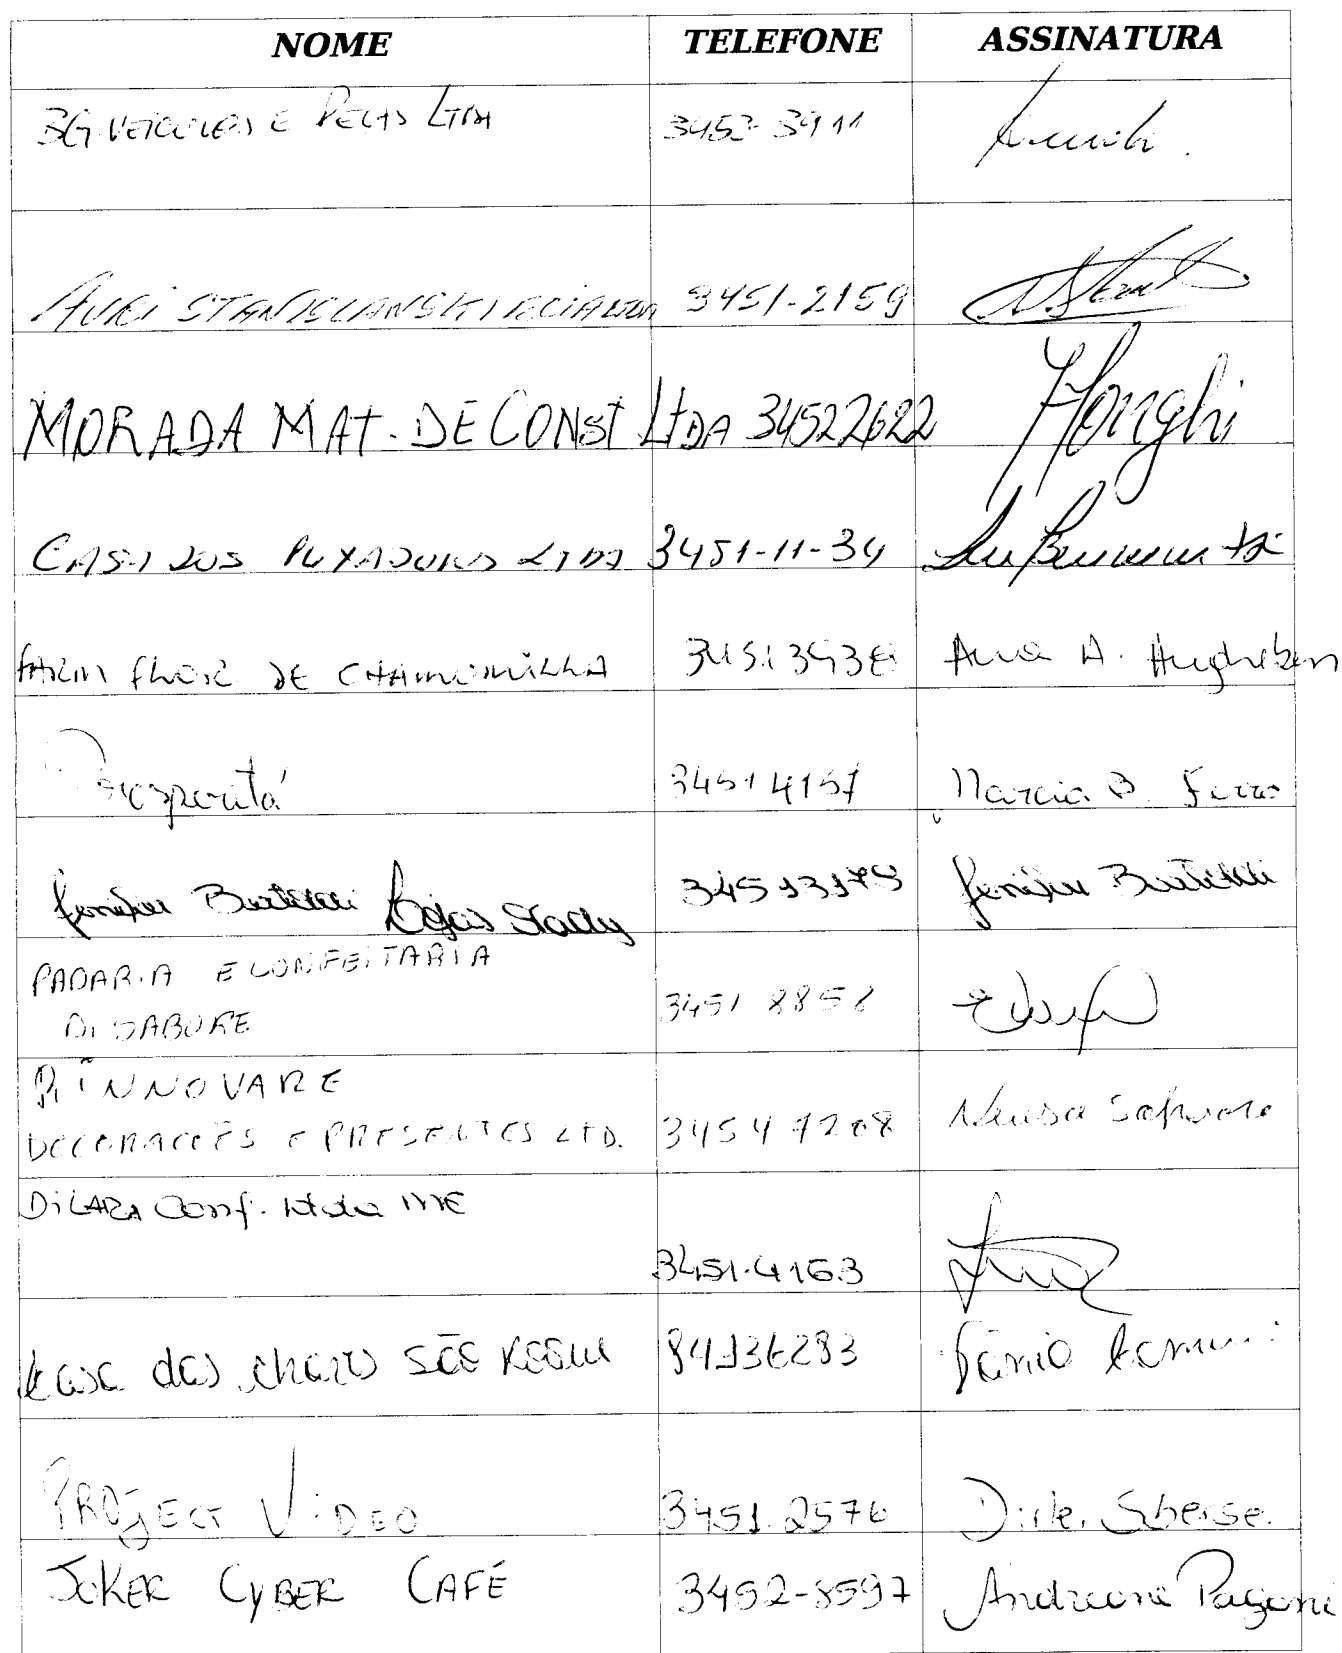 NOME TELEFONE ASSINATURA
BG VEICULOS E PECAS LTDA 3452-3911
AURI STANISLANSKI 3451-2159
MORADA MAT. DE CONST LTDA 34522622
CASA DOS PUXADORES LTDA 3451-11-34
FARM FLOR DE CHAMOMILLA 3451 3938 Ana A.
Prosperitá 3451 4157 Marcia B. Ferro
Jenifer Lojas 34513175 Jenifer
PADARIA E CONFEITARIA
DI SABORE 3451 8858
RINNOVARE
DECORAÇÕES E PRESENTES LTD. 3454 7208 Neusa
DILARA Conf. Ltda ME
3451.4163
Casa das chaves São Roque 84136283
PROJECT VIDEO 3451.2576
JOKER CYBER CAFÉ 3452-8597 Andreone Pagani